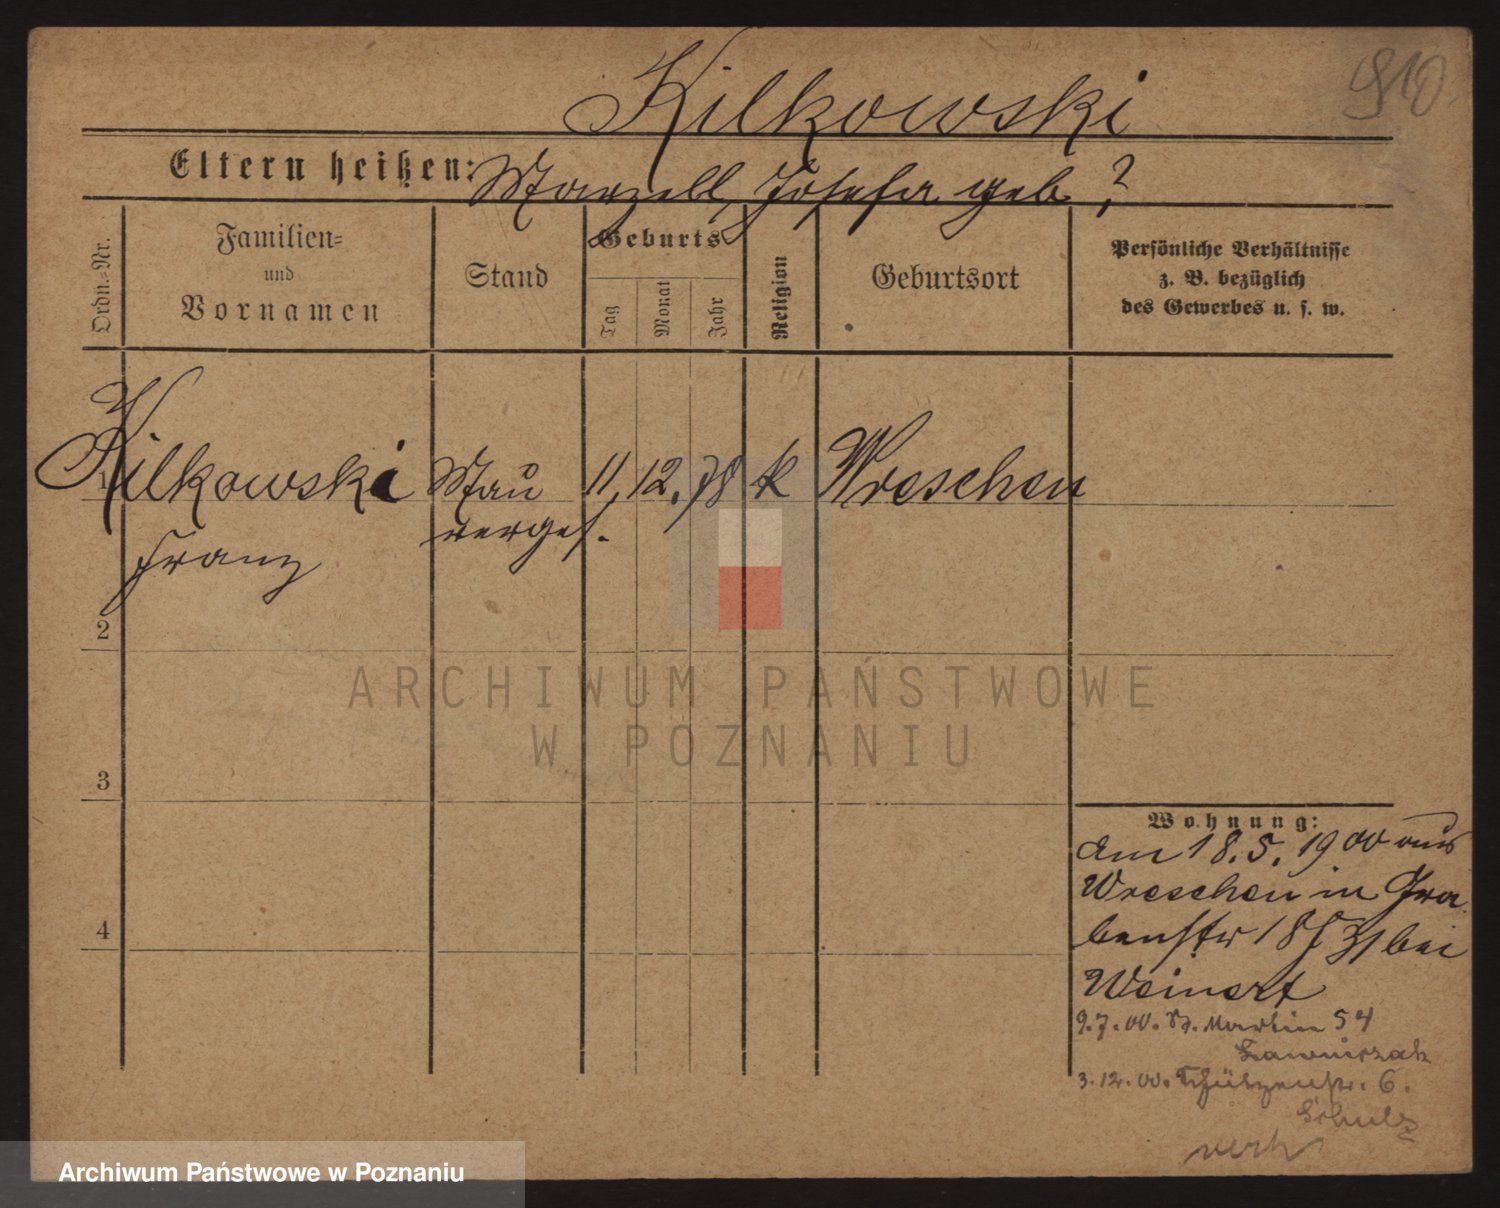 910
Kilkowski
Eltern heißen: Marzell, Josefa geb ?
Ordn.=Nr.
Familien=
und
Vornamen
Stand
Geburts
Tag
Monat
Jahr
Religion
Geburtsort
Persönliche Verhältnisse
z. B. bezüglich
des Gewerbes u. s. w.
1 Kilkowski Mau 11. 12. 78 k Wreschen
Franz rerges.
2
3
4
Wohnung:
Am 18. 5. 1900 aus
Wreschen in Gra
benstr 18 bei
Weinert
9.7.00. St. Martin 54
Lawniczak
3.12.00. Schützenstr. 6.
Schulz
verh
ARCHIWUM PAŃSTWOWE
W POZNANIU
Archiwum Państwowe w Poznaniu